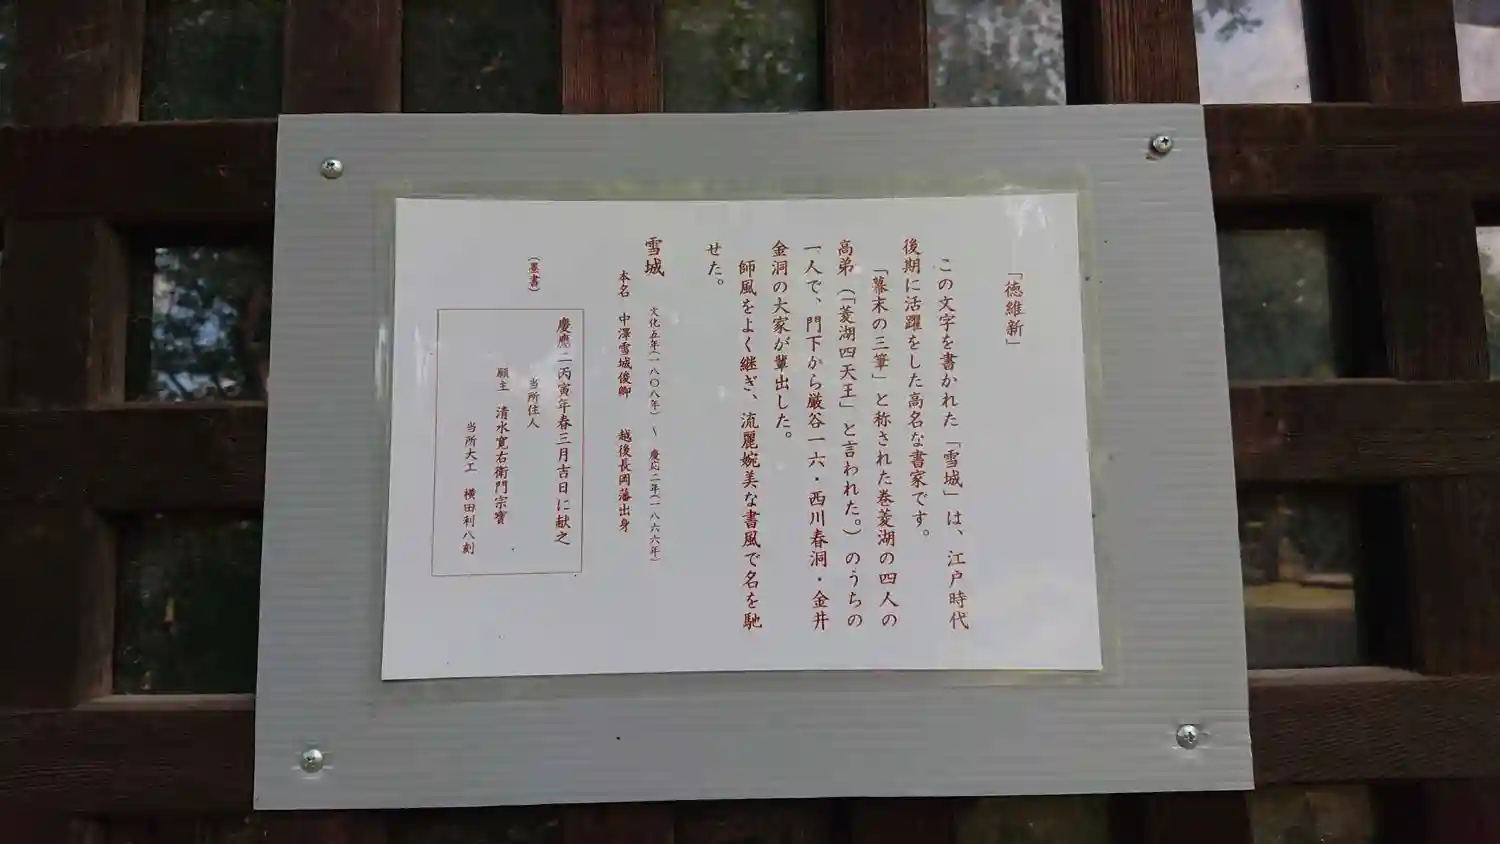 「徳維新」
この文字を書かれた「雪城」は、江戸時代
後期に活躍をした高名な書家です。
「幕末の三筆」と称された巻菱湖の四人の
高弟(「菱湖四天王」と言われた。)のうちの
一人で、門下から厳谷一六・西川春洞・金井
金洞の大家が輩出した。
師風をよく継ぎ、流麗婉美な書風で名を馳
せた。
雪城 文化五年(一八〇八年)~ 慶応二年(一八六六年)
本名 中澤雪城俊卿 越後長岡藩出身
(墨書)
慶應二丙寅年春三月吉日に献之
当所住人
願主 清水寛右衛門宗寳
当所大工 横田利八刻